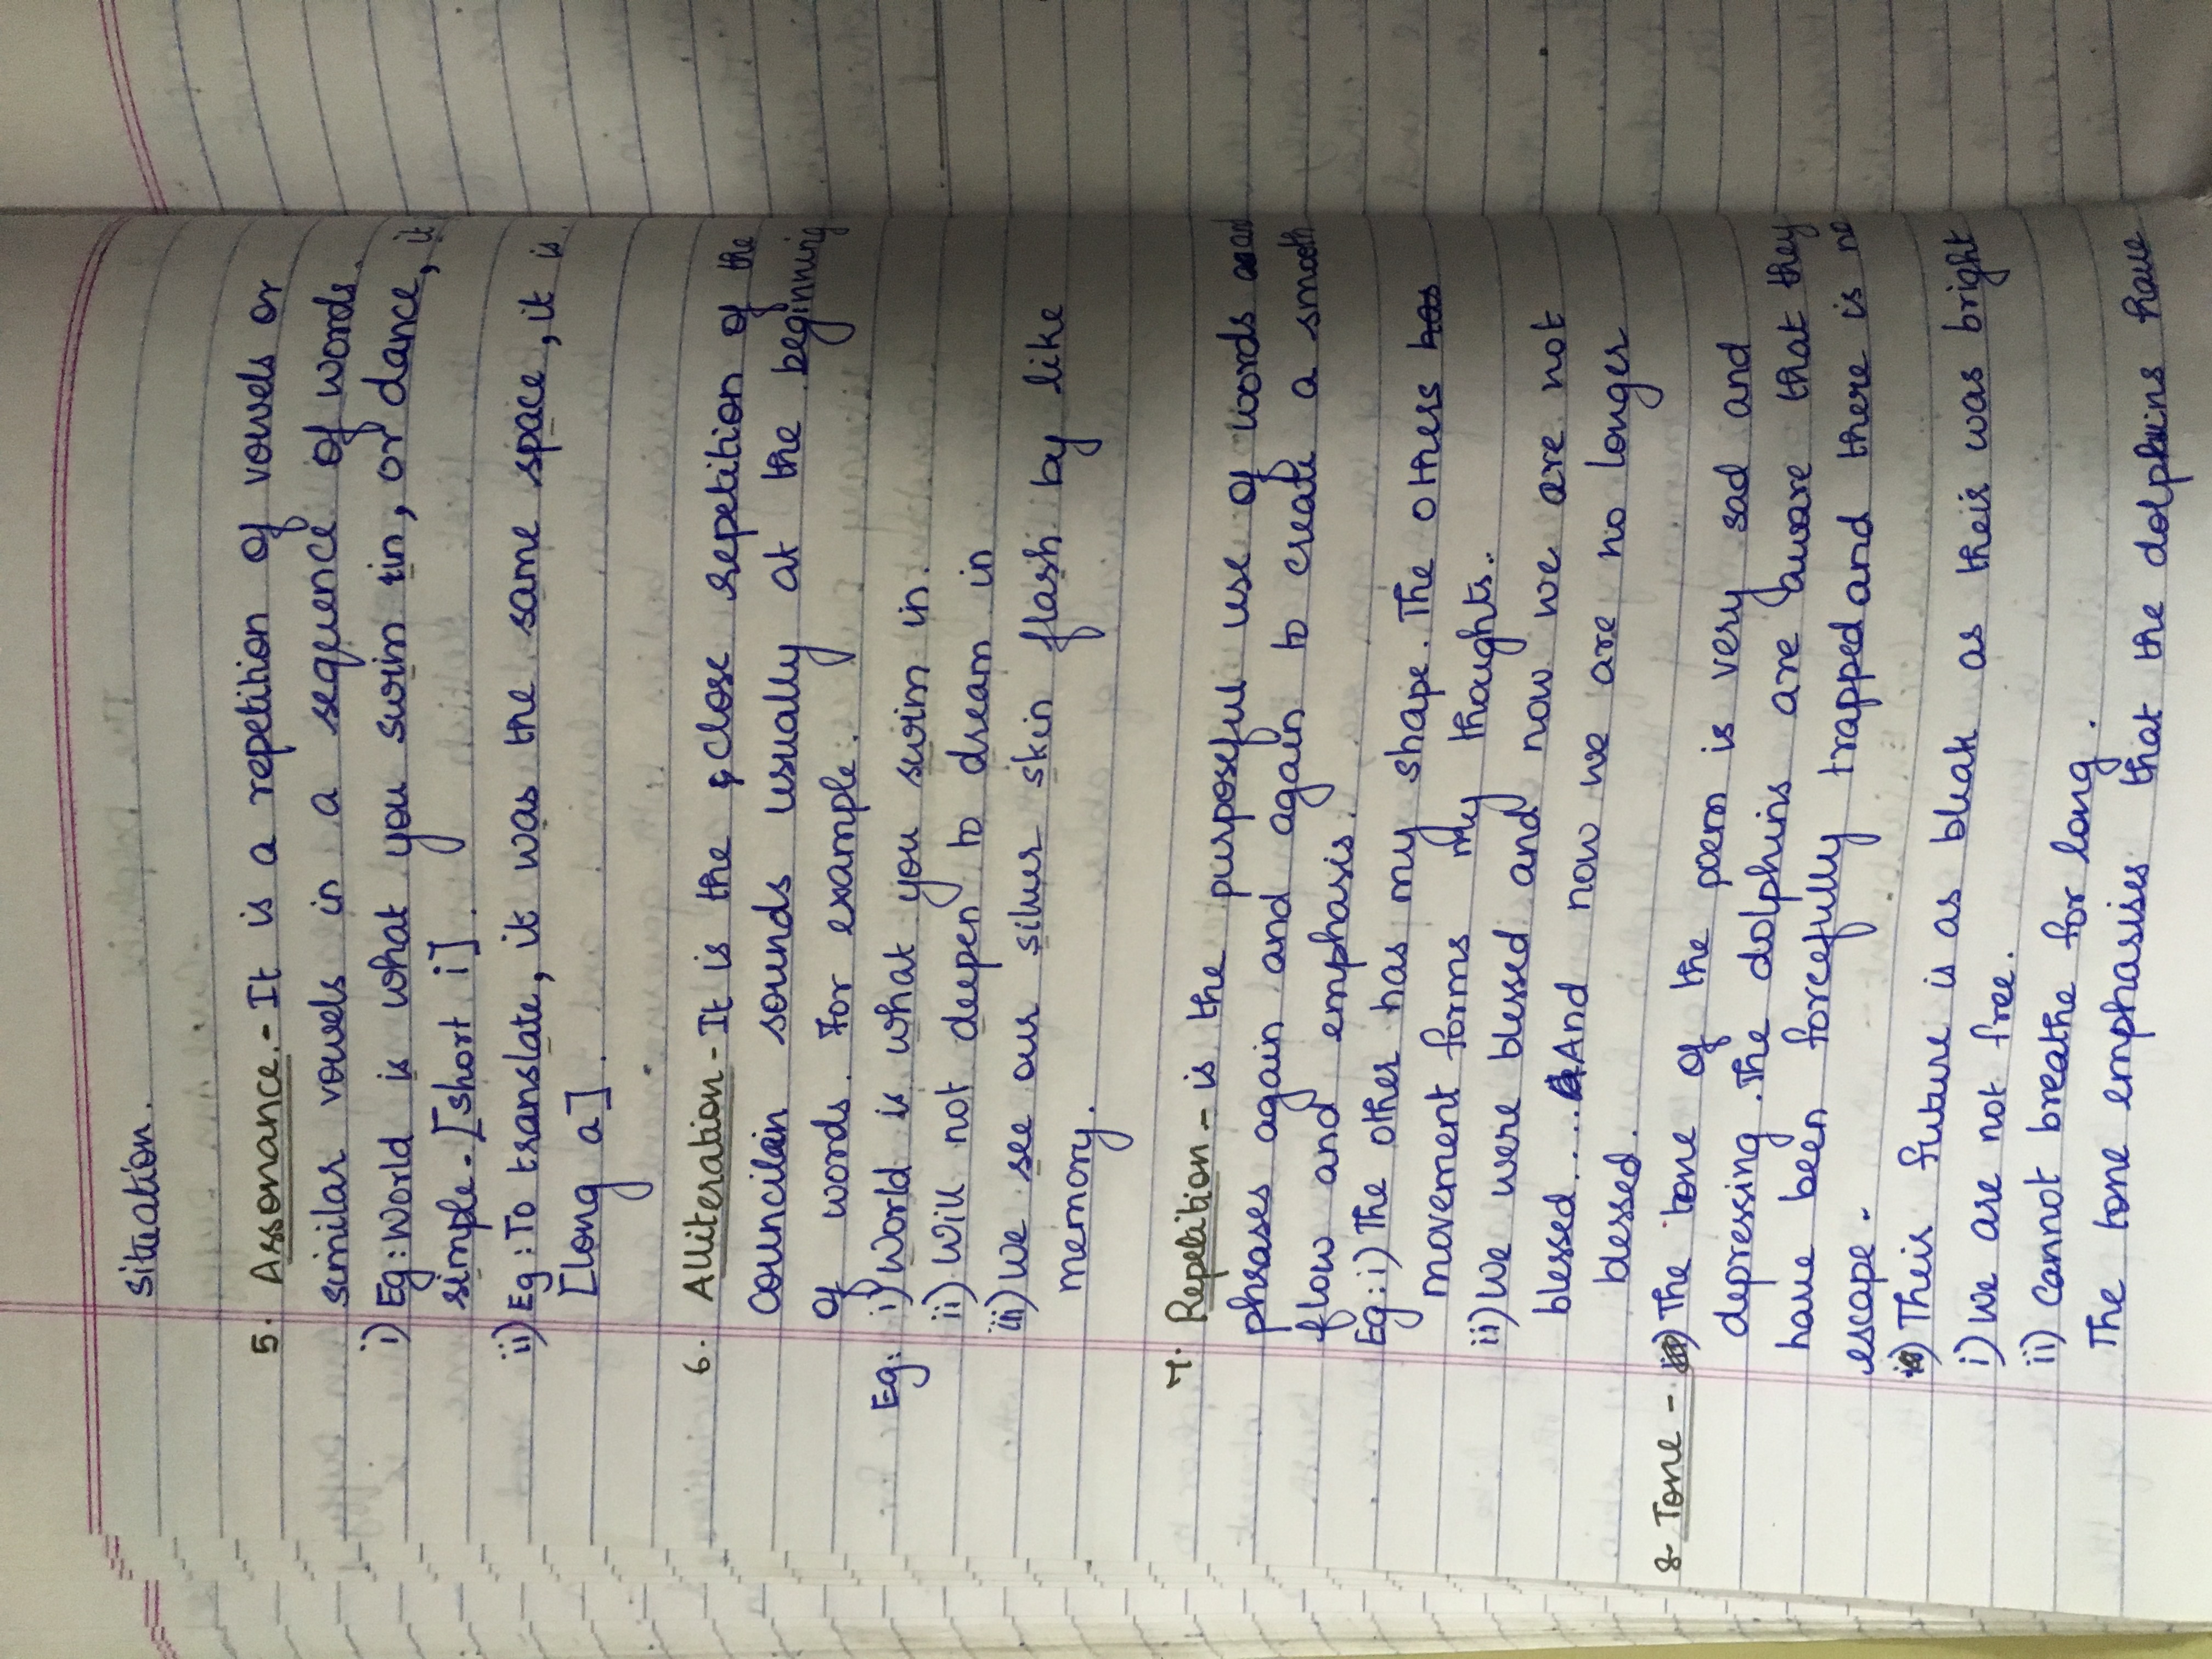 situation.
5. Assonance.- It is a repetition of vowels or
similar vowels in a sequence of words.
i) Eg: World is what you swim in, or dance, it
simple. [short i].
ii) Eg: To translate, it was the same space, it is
[long a].
6. Alliteration - It is the close repetition of the
councilain sounds usually at the beginning
of words. For example.
Eg: i) World is what you swim in.
ii) Will not deepen to dream in
iii) We see our silver skin flash by like
memory.
7. Repetition - is the purposeful use of words and
phrases again and again to create a smooth
flow and emphasis.
Eg: i) The other has my shape. The others has
movement forms my thoughts.
ii) We were blessed and now we are not
blessed.... And now we are no longer
blessed.
8- Tone - The tone of the poem is very sad and
depressing. The dolphins are aware that they
have been forcefully trapped and there is no
escape.
Their future is as bleak as their was bright
i) We are not free.
ii) Cannot breathe for long.
The tone emphasises that the dolphins have